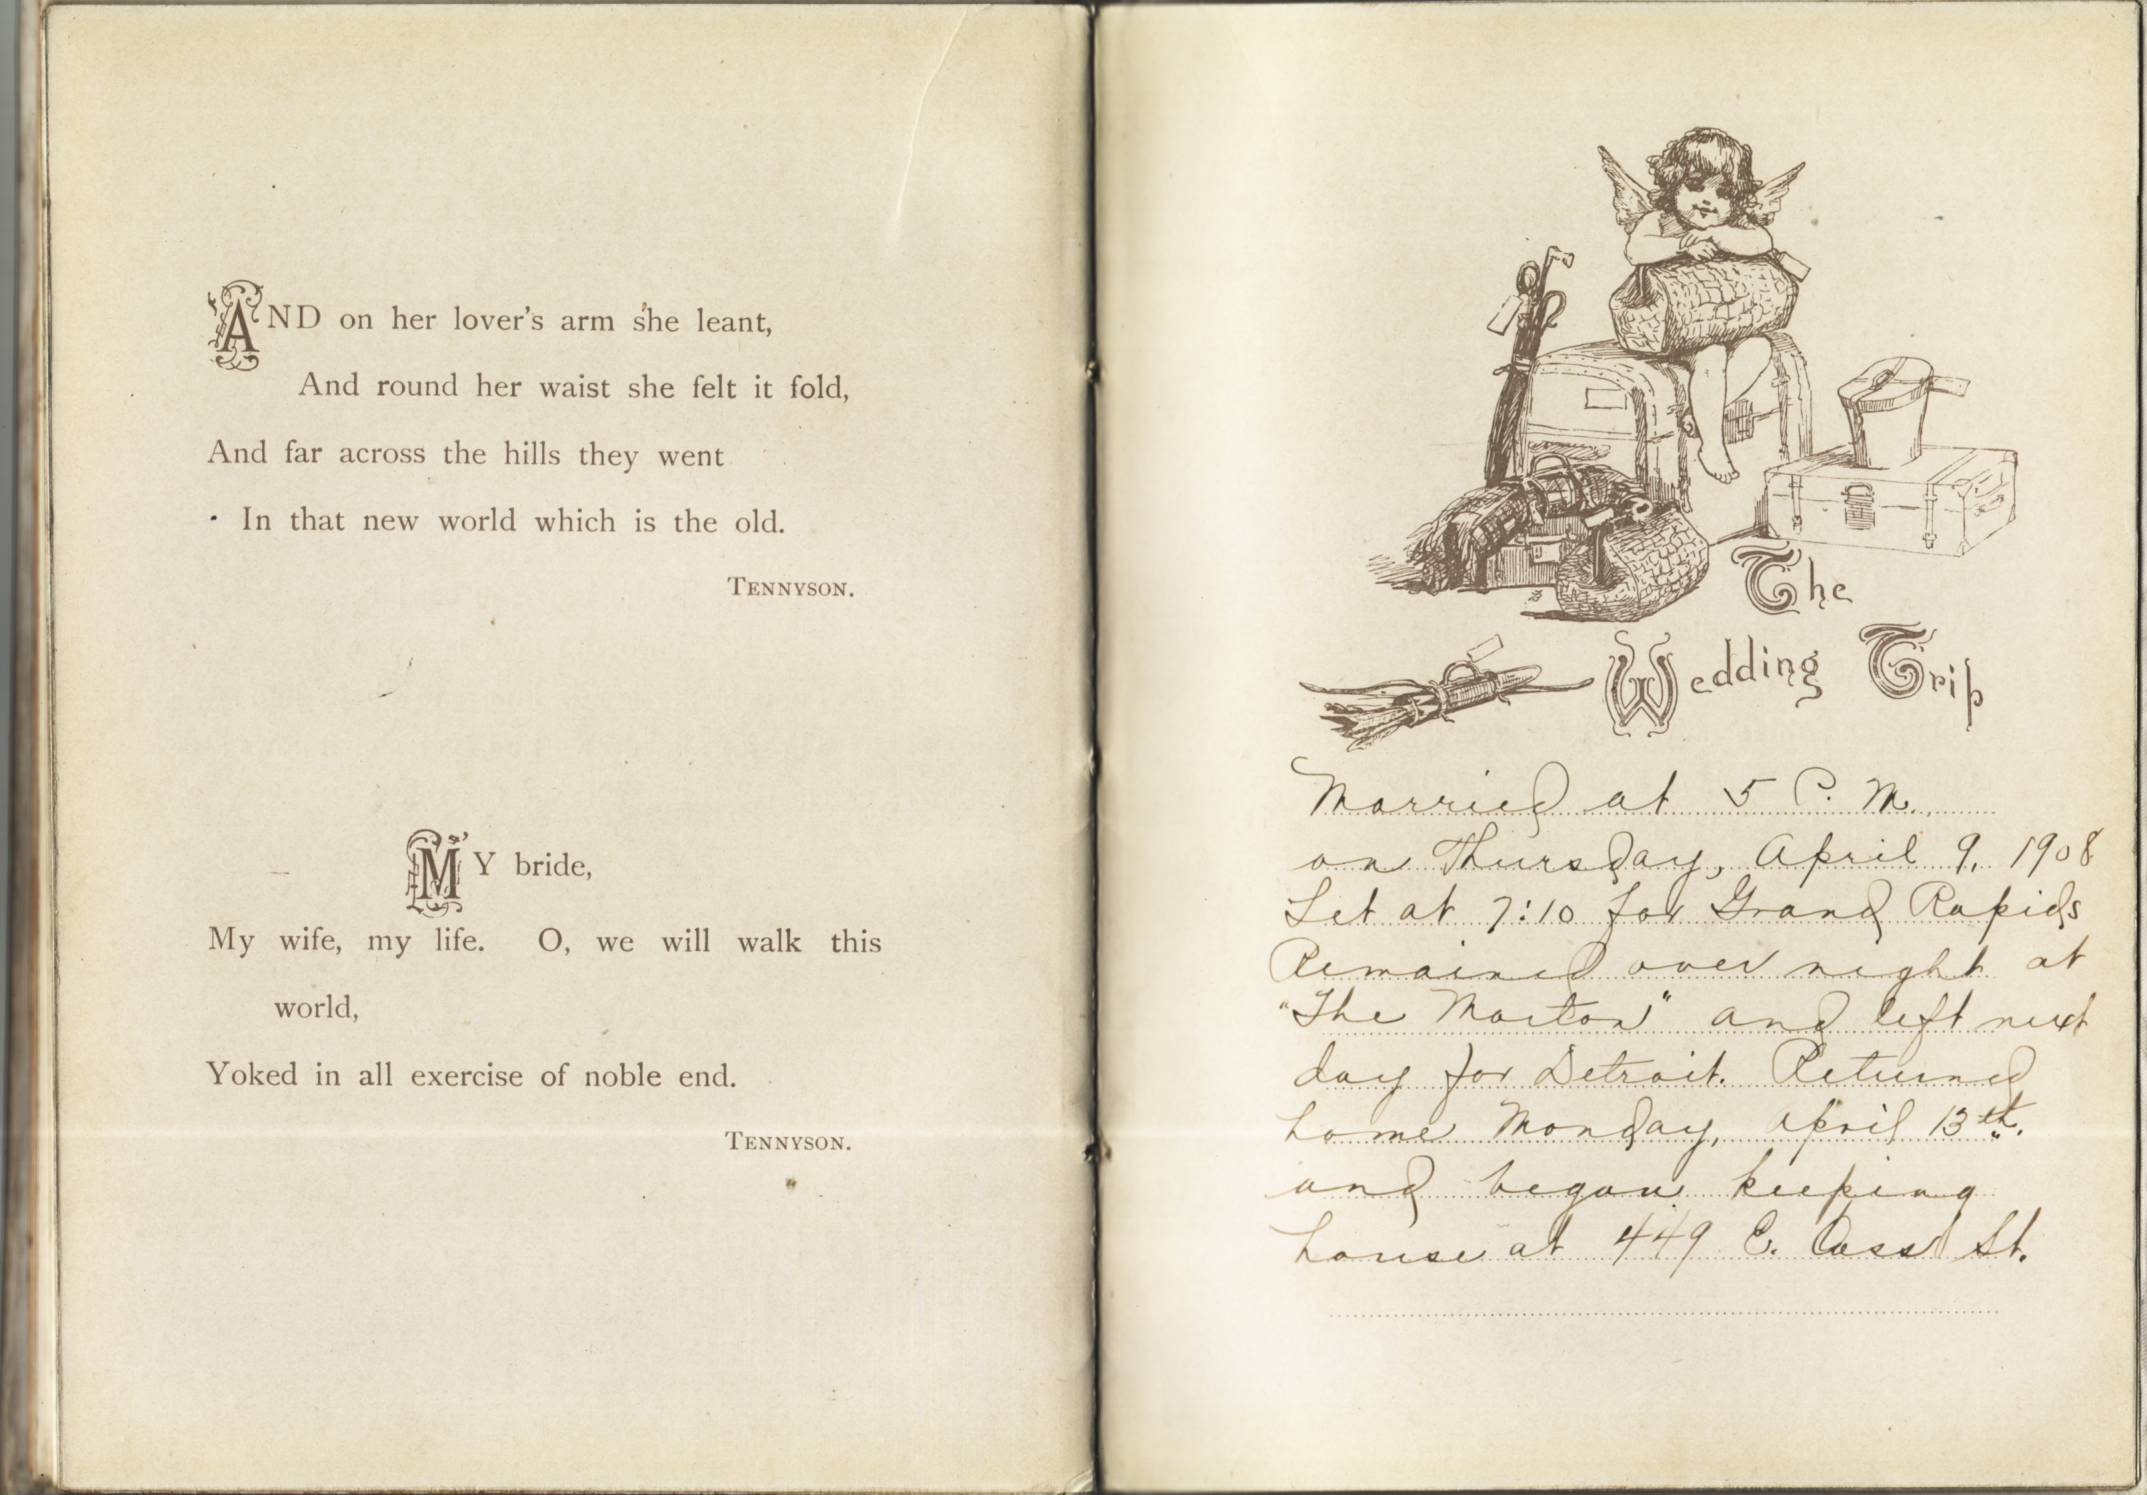 AND on her lover's arm she leant,
And round her waist she felt it fold,
And far across the hills they went
In that new world which is the old.
TENNYSON.
MY bride,
My wife, my life. O, we will walk this
world,
Yoked in all exercise of noble end.
TENNYSON.
The
Wedding Trip
Married at 5 P. M.
on Thursday, April 9, 1908
Let at 7:10 for Grand Rapids
Remained over night at
"The Morton" and left next
day for Detroit. Returned
home Monday, April 13th.
and began keeping
house at 449 E. Cass St.